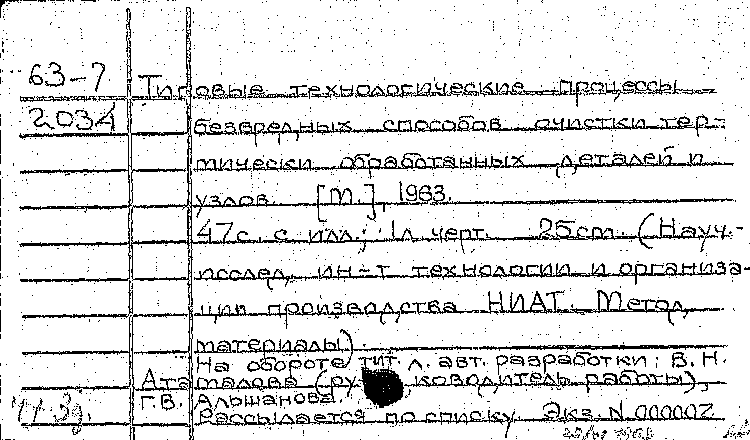 63-7 Типовые технологические процессы
2034 безвредных способов очистки тер-
мически обработанных деталей и
узлов. [М.], 1963.
47с. с илл.; 1л. черт. 25cm. (Науч.-
исслед. ин-т технологии и организа-
ции производства НИАТ. Метод.
материалы).
На обороте тит. л. авт. разработки: В.Н.
работы),
Г.В. Альшанова.
Рассылается по списку. Экз. N 000002